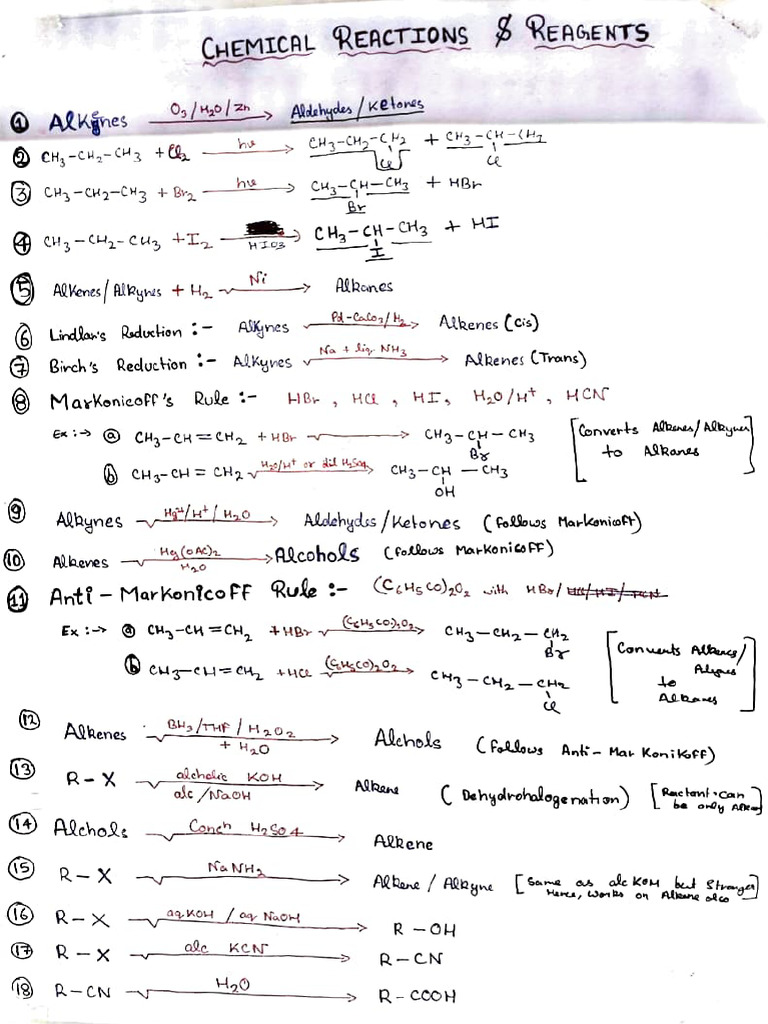 CHEMICAL REACTIONS & REAGENTS
① Alkynes O₃/H₂O/Zn → Aldehydes/Ketones
② CH₃-CH₂-CH₃ + Cl₂ hν → CH₃-CH₂-CH₂ + CH₃-CH-CH₂
Cl Cl
③ CH₃-CH₂-CH₃ + Br₂ hν → CH₃-CH-CH₃ + HBr
Br
④ CH₃-CH₂-CH₃ + I₂ HIO3 → CH₃-CH-CH₃ + HI
I
⑤ Alkenes/Alkynes + H₂ Ni → Alkanes
⑥ Lindlar's Reduction :- Alkynes Pd-CaCO₃/H₂ → Alkenes (Cis)
⑦ Birch's Reduction :- Alkynes Na + liq. NH₃ → Alkenes (Trans)
⑧ Markonicoff's Rule :- HBr, HCl, HI, H₂O/H⁺, HCN
Ex :→ ⓐ CH₃-CH=CH₂ + HBr → CH₃-CH-CH₃ [Converts Alkenes/Alkynes
Br to Alkanes]
ⓑ CH₃-CH=CH₂ H₂O/H⁺ or dil H₂SO₄ → CH₃-CH-CH₃
OH
⑨ Alkynes Hg²⁺/H⁺/H₂O → Aldehydes/Ketones (follows Markonicoff)
⑩ Alkenes Hg(OAc)₂ → Alcohols (follows Markonicoff)
H₂O
⑪ Anti-Markonicoff Rule :- (C₆H₅CO)₂O₂ with HBr/
Ex :→ ⓐ CH₃-CH=CH₂ + HBr (C₆H₅CO)₂O₂ → CH₃-CH₂-CH₂ [Converts Alkenes/
Br Alkynes
ⓑ CH₃-CH=CH₂ + HCl (C₆H₅CO)₂O₂ → CH₃-CH₂-CH₂ to
Cl Alkanes]
⑫ Alkenes BH₃/THF/H₂O₂ → Alchols (follows Anti-Markonikoff)
+ H₂O
⑬ R-X alcholic KOH → Alkene (Dehydrohalogenation) [Reactant can
alc/NaOH be only Alkane]
⑭ Alchols Concn H₂SO4 → Alkene
⑮ R-X NaNH₂ → Alkene/Alkyne [Same as alc KOH but Stronger
Hence, works on Alkene also]
⑯ R-X aqKOH/aq NaOH → R-OH
⑰ R-X alc KCN → R-CN
⑱ R-CN H₂O → R-COOH